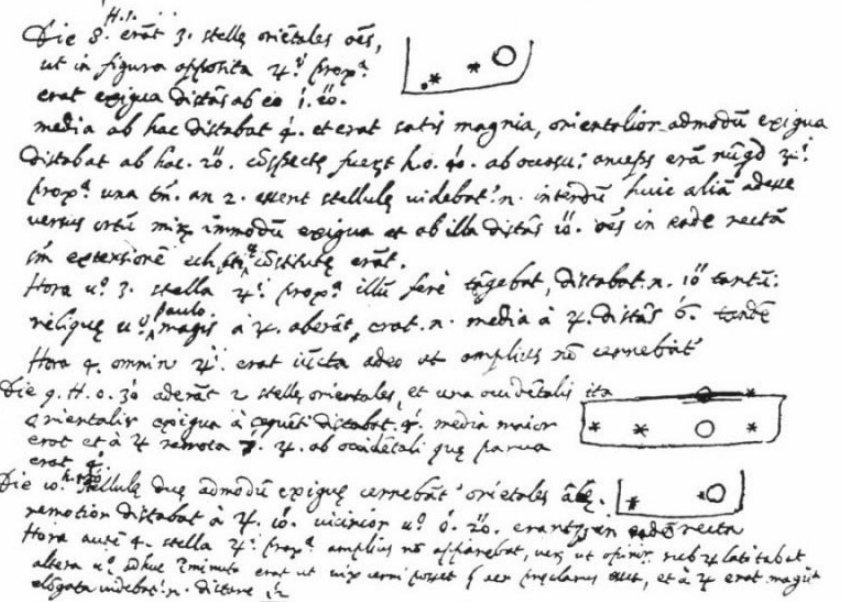 H. 1.
Die 8. erãt 3. stellę oriẽtales oẽs,
ut in figura opposita ♃i prop.a
erat exigua distãs ab eo 1'. 20''.
media ab hac distabat 4'. et erat satis magnia, orientalior admodũ exigua
distabat ab hac. 20''. cõspectę fuerũt h. 0. 40. ab occasu: anceps erã nũqd ♃i
prop.a una tm̃. an 2. essent stellulę videbat' n. interdũ huic aliã adesse
versus ortũ mirũ immodũ exigua et ab illa distãs 10''. oẽs in eadẽ rectã
sm̃ extensionẽ eclypticę cõstitutę erãt.
Hora uo 3. stella ♃i prop.a illũ ferè tãgebat, distabat. n. 10'' tantũ:
reliquę uo paulo magis à ♃. aberãt, erat. n. media à ♃. distãs 6'.
Hora 4. omnin ♃i erat iũcta adeo ut amplius nõ cernebat'
Die 9. H. 0. 30' aderãt 2 stellę orientales, et una occidẽtalis ita
orientalis exigua à sequẽti distabat. 4'. media maior
erat et à ♃ remota 7'. ♃. ab occidẽtali quę parva
erat 4'
Die 10. h. 1. 30 stellulę duę admodũ exiguę cernebãt' oriẽtales ãbę.
remotior distabat à ♃. 10'. vicinior uo 0'. 20''. erant in eadẽ recta
Hora autẽ 4. stella ♃i prop.a amplius nõ apparebat, verũ ut opinor sub ♃ latitabat
altera uo adhuc iminuta erat ut vix cerni posset aer preclarus esset, et à ♃ erat magis
elõgata videbat' n. distare 12'